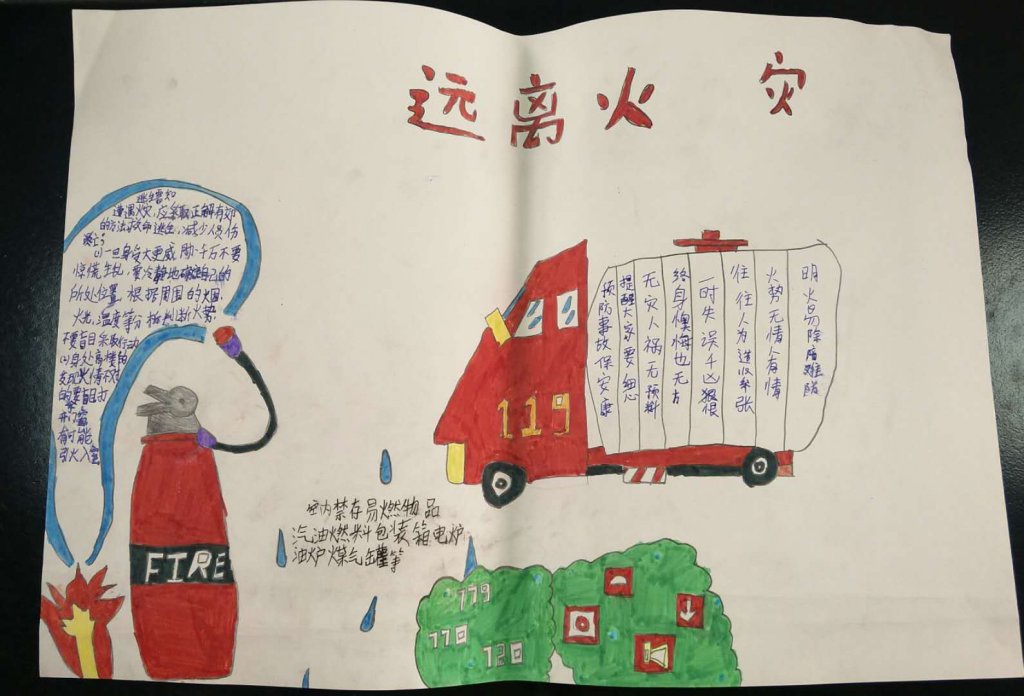 远离火灾
逃生需知
遭遇火灾,应采取正确有效
的方法救命逃生,减少人员伤
(1)一旦身受火更威胁千万不要
惊慌失措,要冷静地确定自己的
所处位置,根据周围的烟.
火光,温度等分析判断火势,
不要盲目采取行动
(2)身处高楼的
发现火情不
的要盲目打
开门窗
有可能
引火入室
119
明火易除盾难防
火势无情人有情
往往人为造
一时失误千
终身懊悔也无方
无灾人祸无预料
提醒大家要细心
预防事故保安康
室内禁存易燃物品
汽油燃料包装箱电炉
油炉煤气罐等
FIRE
119
110
120